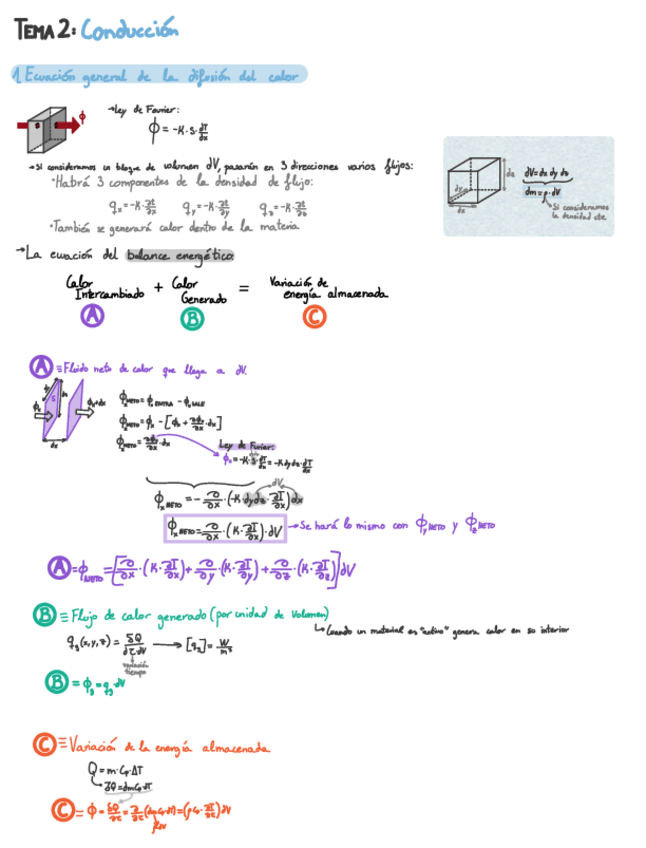 TEMA 2: Conducción
1. Ecuación general de la difusión del calor
→Ley de Fourier:
ϕ
S
ϕ = -K·S·dT/dx
→Si consideramos un bloque de volumen dV, pasarán en 3 direcciones varios flujos:
·Habrá 3 componentes de la densidad de flujo:
qx=-K·∂t/∂x qy=-K·∂t/∂y qz=-K·∂t/∂z
·También se generará calor dentro de la materia
dz
dy
dx
dV=dx dy dz
dm=ρ·dV
Si consideramos
la densidad cte
→La ecuación del balance energético:
Calor Intercambiado + Calor Generado = Variación de energía almacenada
A B C
A ≡Fluido neto de calor que llega a dV.
ϕx
S
ϕx+dx
dx
ϕNETO=ϕENTRA - ϕSALE
ϕNETO=ϕx - [ϕx + ∂ϕx/∂x·dx]
ϕxNETO=∂ϕx/∂x·dx
Ley de Furier:
ϕx=-K·S·dT/dx=-Kdydz·dT/dx
dV
ϕxNETO=-∂/∂x·(-K·dydz·∂T/∂x)dx
ϕxNETO=∂/∂x·(K·∂T/∂x)·dV →Se hará lo mismo con ϕyNETO y ϕzNETO
A=ϕNETO=[∂/∂x·(K·∂T/∂x)+∂/∂y·(K·∂T/∂y)+∂/∂z·(K·∂T/∂z)]dV
B ≡ Flujo de calor generado (por unidad de Volumen)
↳Cuando un material es "activo" genera calor en su interior
qg(x,y,z)=δQ/dτ·dV → [qg]=W/m³
variación
tiempo
B = ϕg=qg·dV
C ≡Variación de la energía almacenada
Q=m·Cp·ΔT
↳δQ=dmCp·dT
C = ϕ=δQ/∂τ=∂/∂τ(dmCp·dT)=(ρCp·∂T/∂τ)dV
ρdV